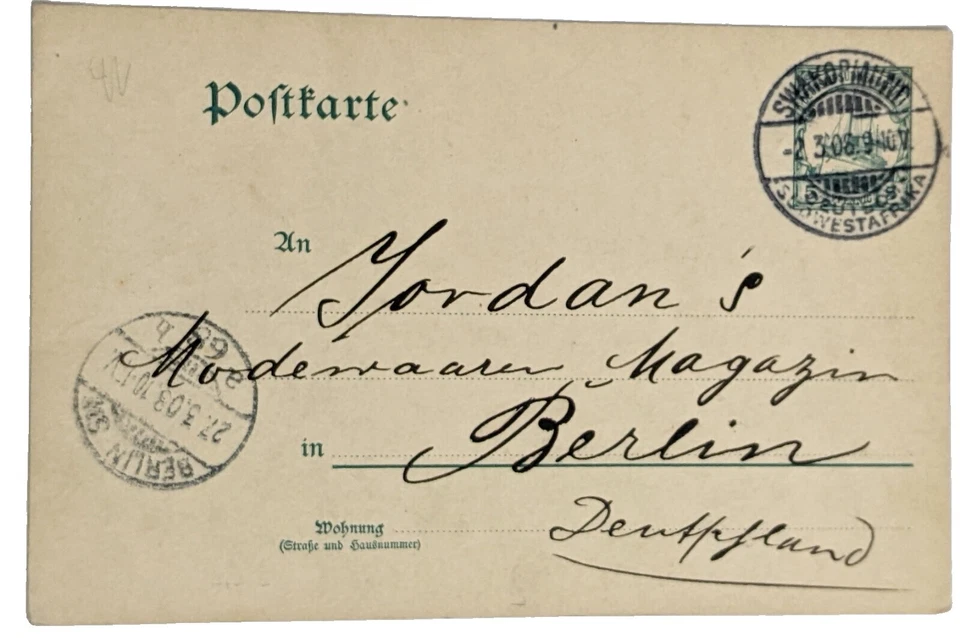 Postkarte
SWAKOPMUND
- 2. 3.08. 9-10 V.
DEUTSCH-
SÜDWESTAFRIKA
An
Jordan's
Modewaaren Magazin
in Berlin
Wohnung
(Straße und Hausnummer)
Deutschland
BERLIN SW
27. 3.08. 10-11 V.